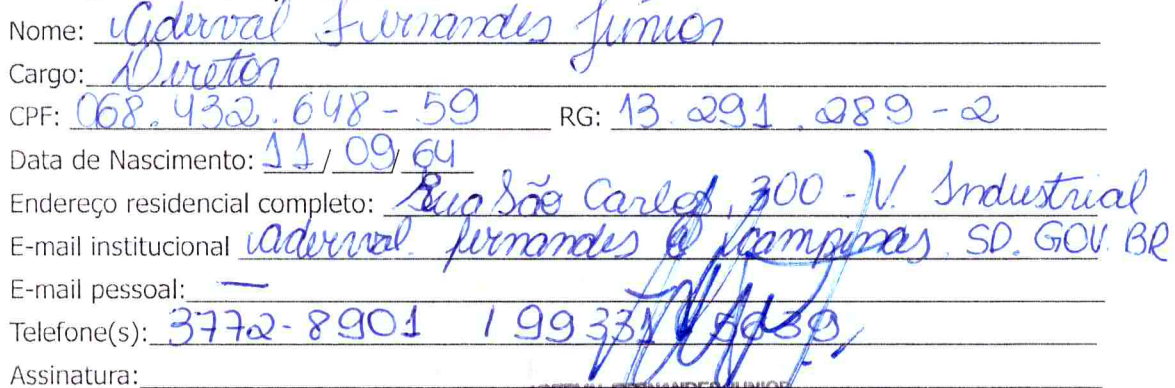 Nome: Aderval Fernandes Júnior
Cargo: Diretor
CPF: 068.432.648-59 RG: 13.291.289-2
Data de Nascimento: 11/09/64
Endereço residencial completo: Rua São Carlos, 300 - V. Industrial
E-mail institucional aderval.fernandes@campinas.SP.GOV.BR
E-mail pessoal: —
Telefone(s): 3772-8901 / 99331
Assinatura:
FERNANDES JUNIOR